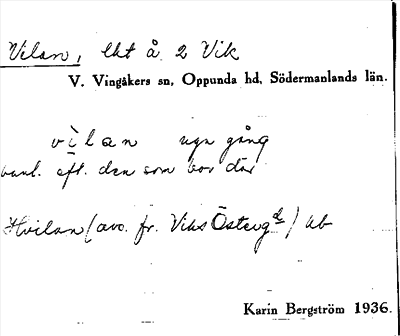 Vilan, lht å 2 Vik
V. Vingåkers sn, Oppunda hd, Södermanlands län.
vilan ngn gång
vanl. eft. den som bor där
Hvilan (avs. fr. Viks Österg^d) ub
Karin Bergström 1936.